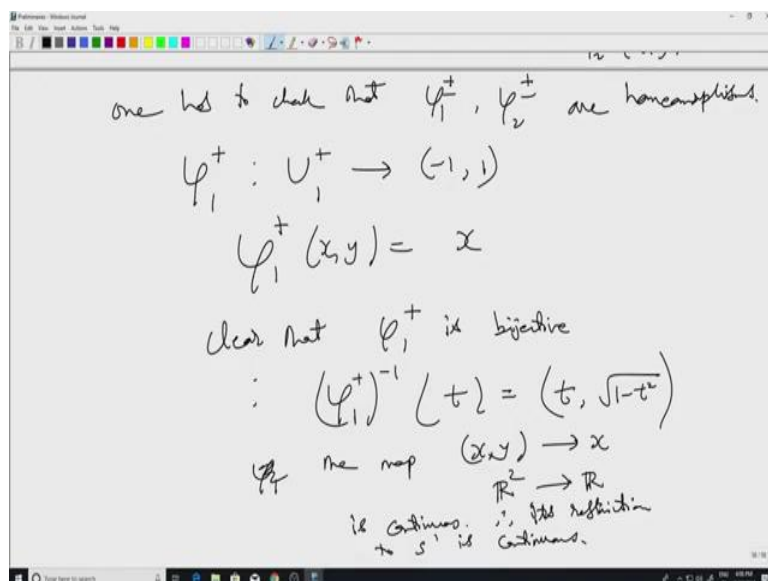 Preliminaries - Windows Journal
File Edit View Insert Actions Tools Help
one has to check that φ₁^±, φ₂^± are homeomorphisms.
φ₁⁺ : U₁⁺ → (-1, 1)
φ₁⁺ (x, y) = x
clear that φ₁⁺ is bijective
: (φ₁⁺)⁻¹ (t) = (t, √(1-t²))
the map (x, y) → x
ℝ² → ℝ
is continuous. ∴ its restriction
to S¹ is continuous.
Type here to search